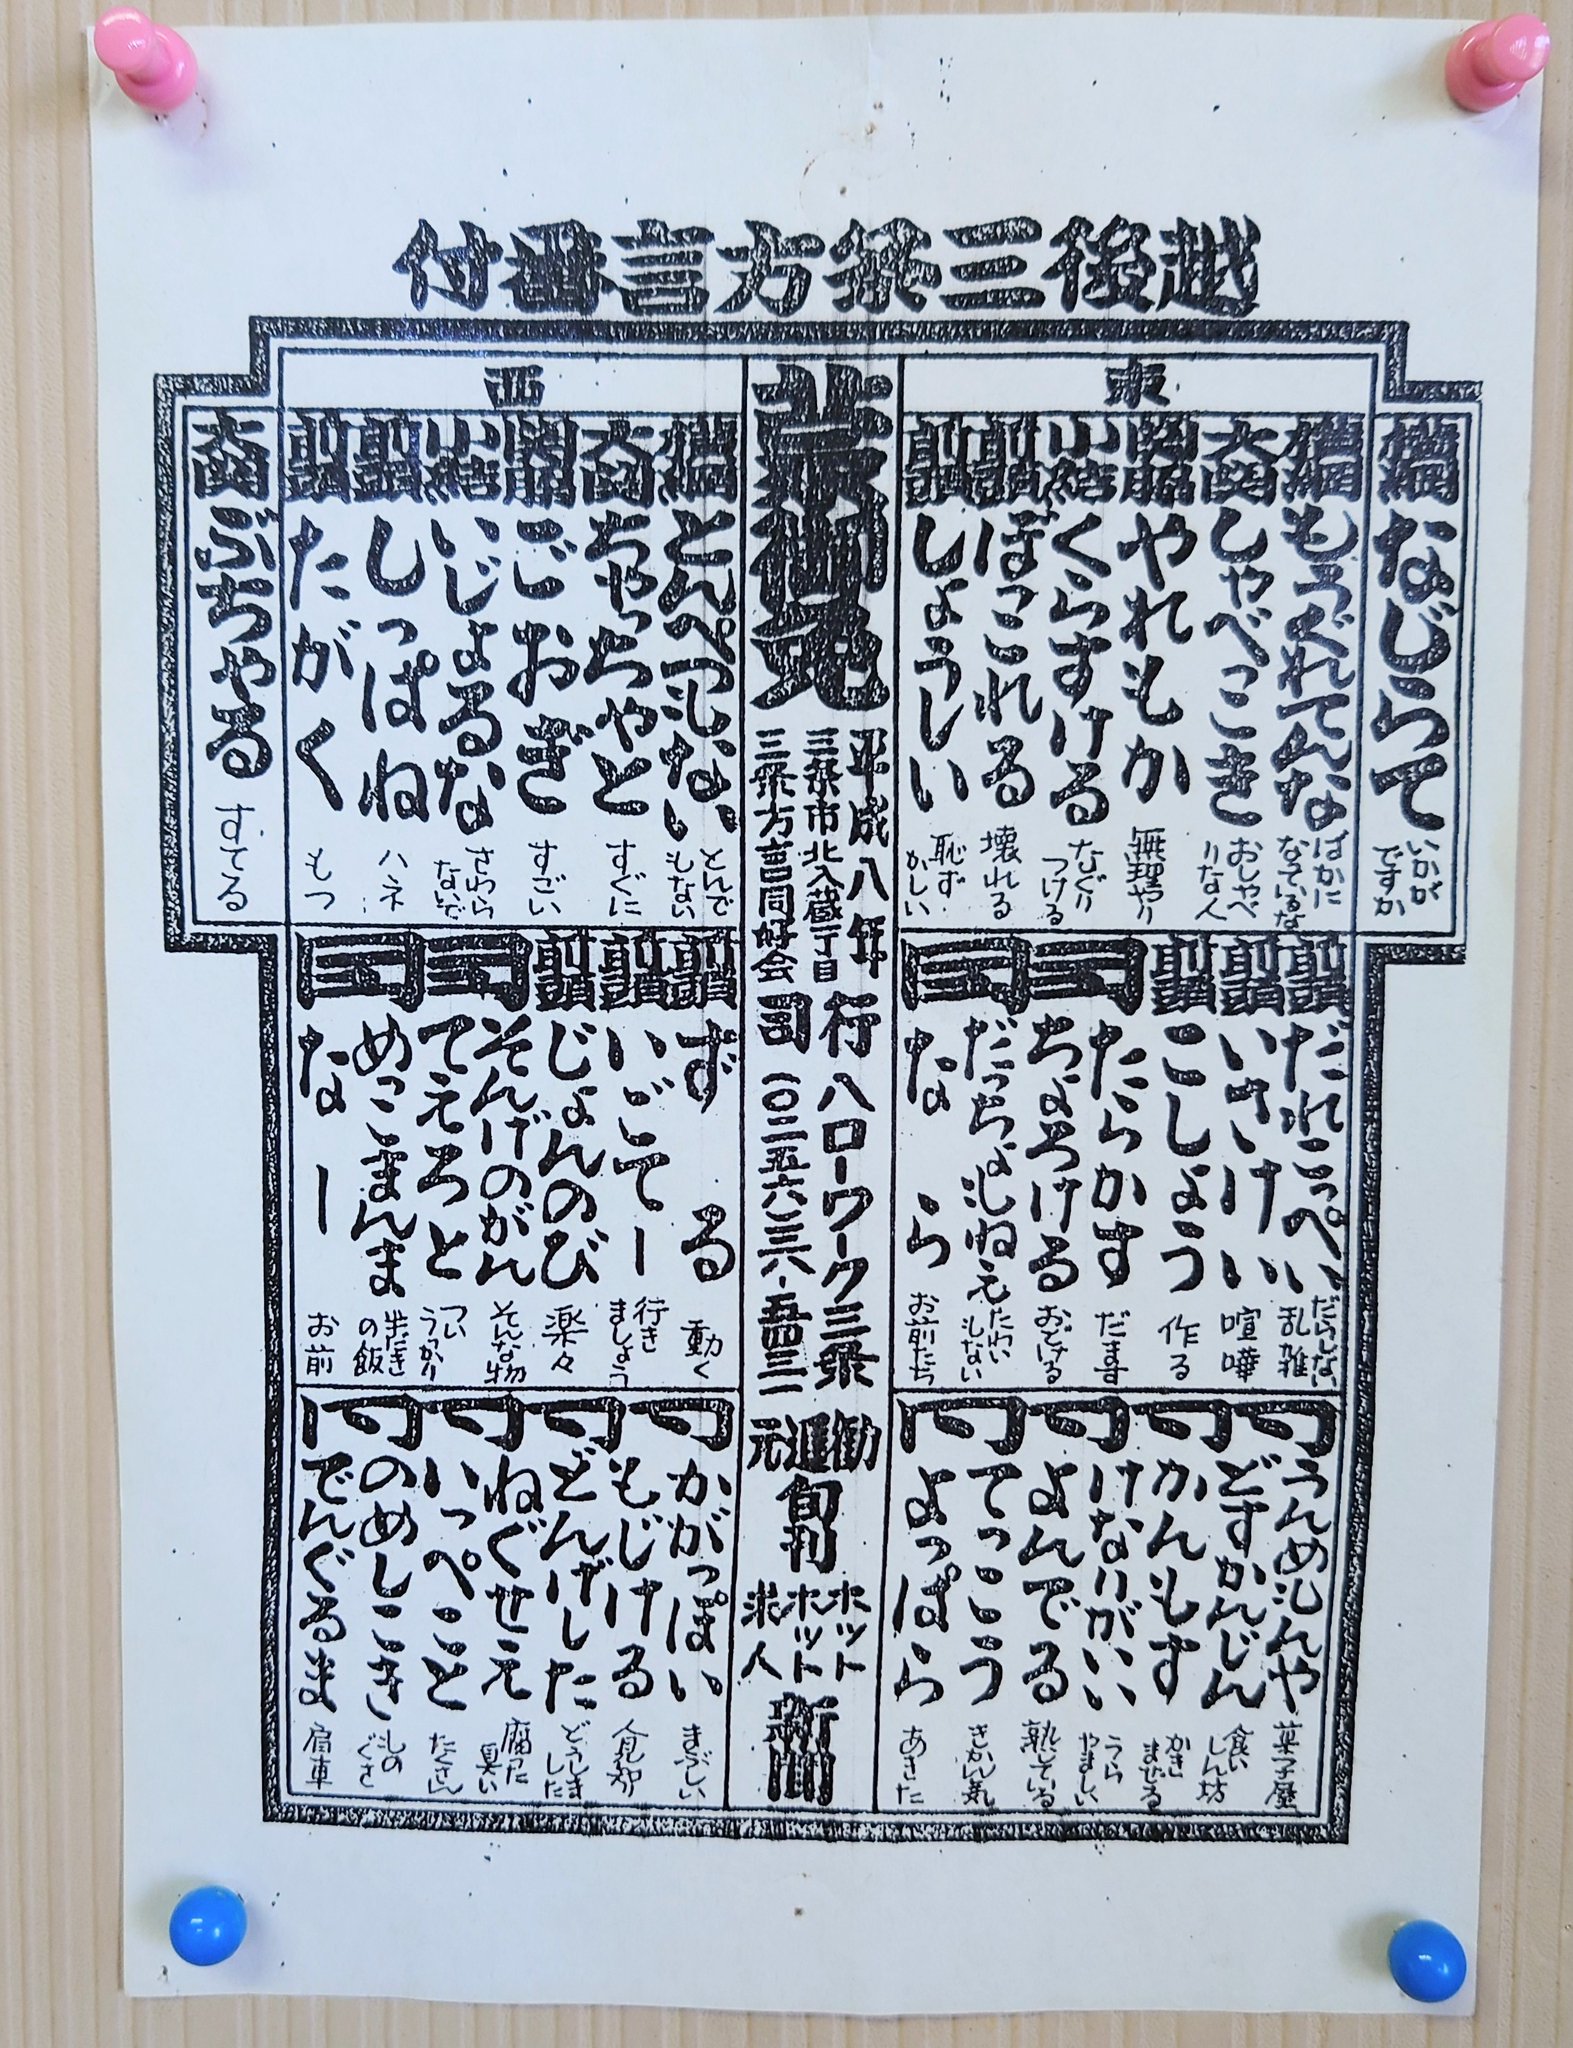 越後三条方言番付
東
横綱 なじらて いかがですか
横綱 もうぐれてんな ばかになっているな
大関 しゃべっこき おしゃべりな人
関脇 やれもか 無理やり
小結 くらすける なぐりつける
前頭 ぼこれる 壊れる
前頭 しょうしい 恥ずかしい
前頭 だれこっぺい だらしない乱雑
前頭 いさけい 喧嘩
前頭 こしょう 作る
同 たらかす だます
同 ちょろける おどける
同 だっちょしねえ たわいしない
同 なら お前たち
同 うんめしんや 菓子屋
同 どすかんじん 食いしん坊
同 かんもす かきまぜる
同 けなりがい うらやましい
同 よんでる 熟している
同 てっこう きかん気
同 よっぱら あきた
蒙御免
平成八年
三条市北入蔵一丁目
三条方言同好会
行司
ハローワーク三条
〇二五六・三八・五四三一
勧進元
旬刊
ホットホット求人
新聞
西
横綱 とんぺつしない とんでもない
大関 ちゃっちゃと すぐに
関脇 ごおぎ すごい
小結 いじょるな さわらないで
前頭 しっぱね ハネ
前頭 たがく もつ
大関 ぶちゃる すてる
前頭 ずる 動く
前頭 いごてー 行きましょう
前頭 じょんのび 楽々
同 そんげのがん そんな物
同 てえろと ついうっかり
同 めっこまんま 半だきの飯
同 なー お前
同 かがっぽい まぶしい
同 もじける 人見知り
同 どんげした どうしました
同 ねぐせえ 腐った臭い
同 いっぺこと たくさん
同 のめしこき しのぐさ
同 でんぐるま 肩車